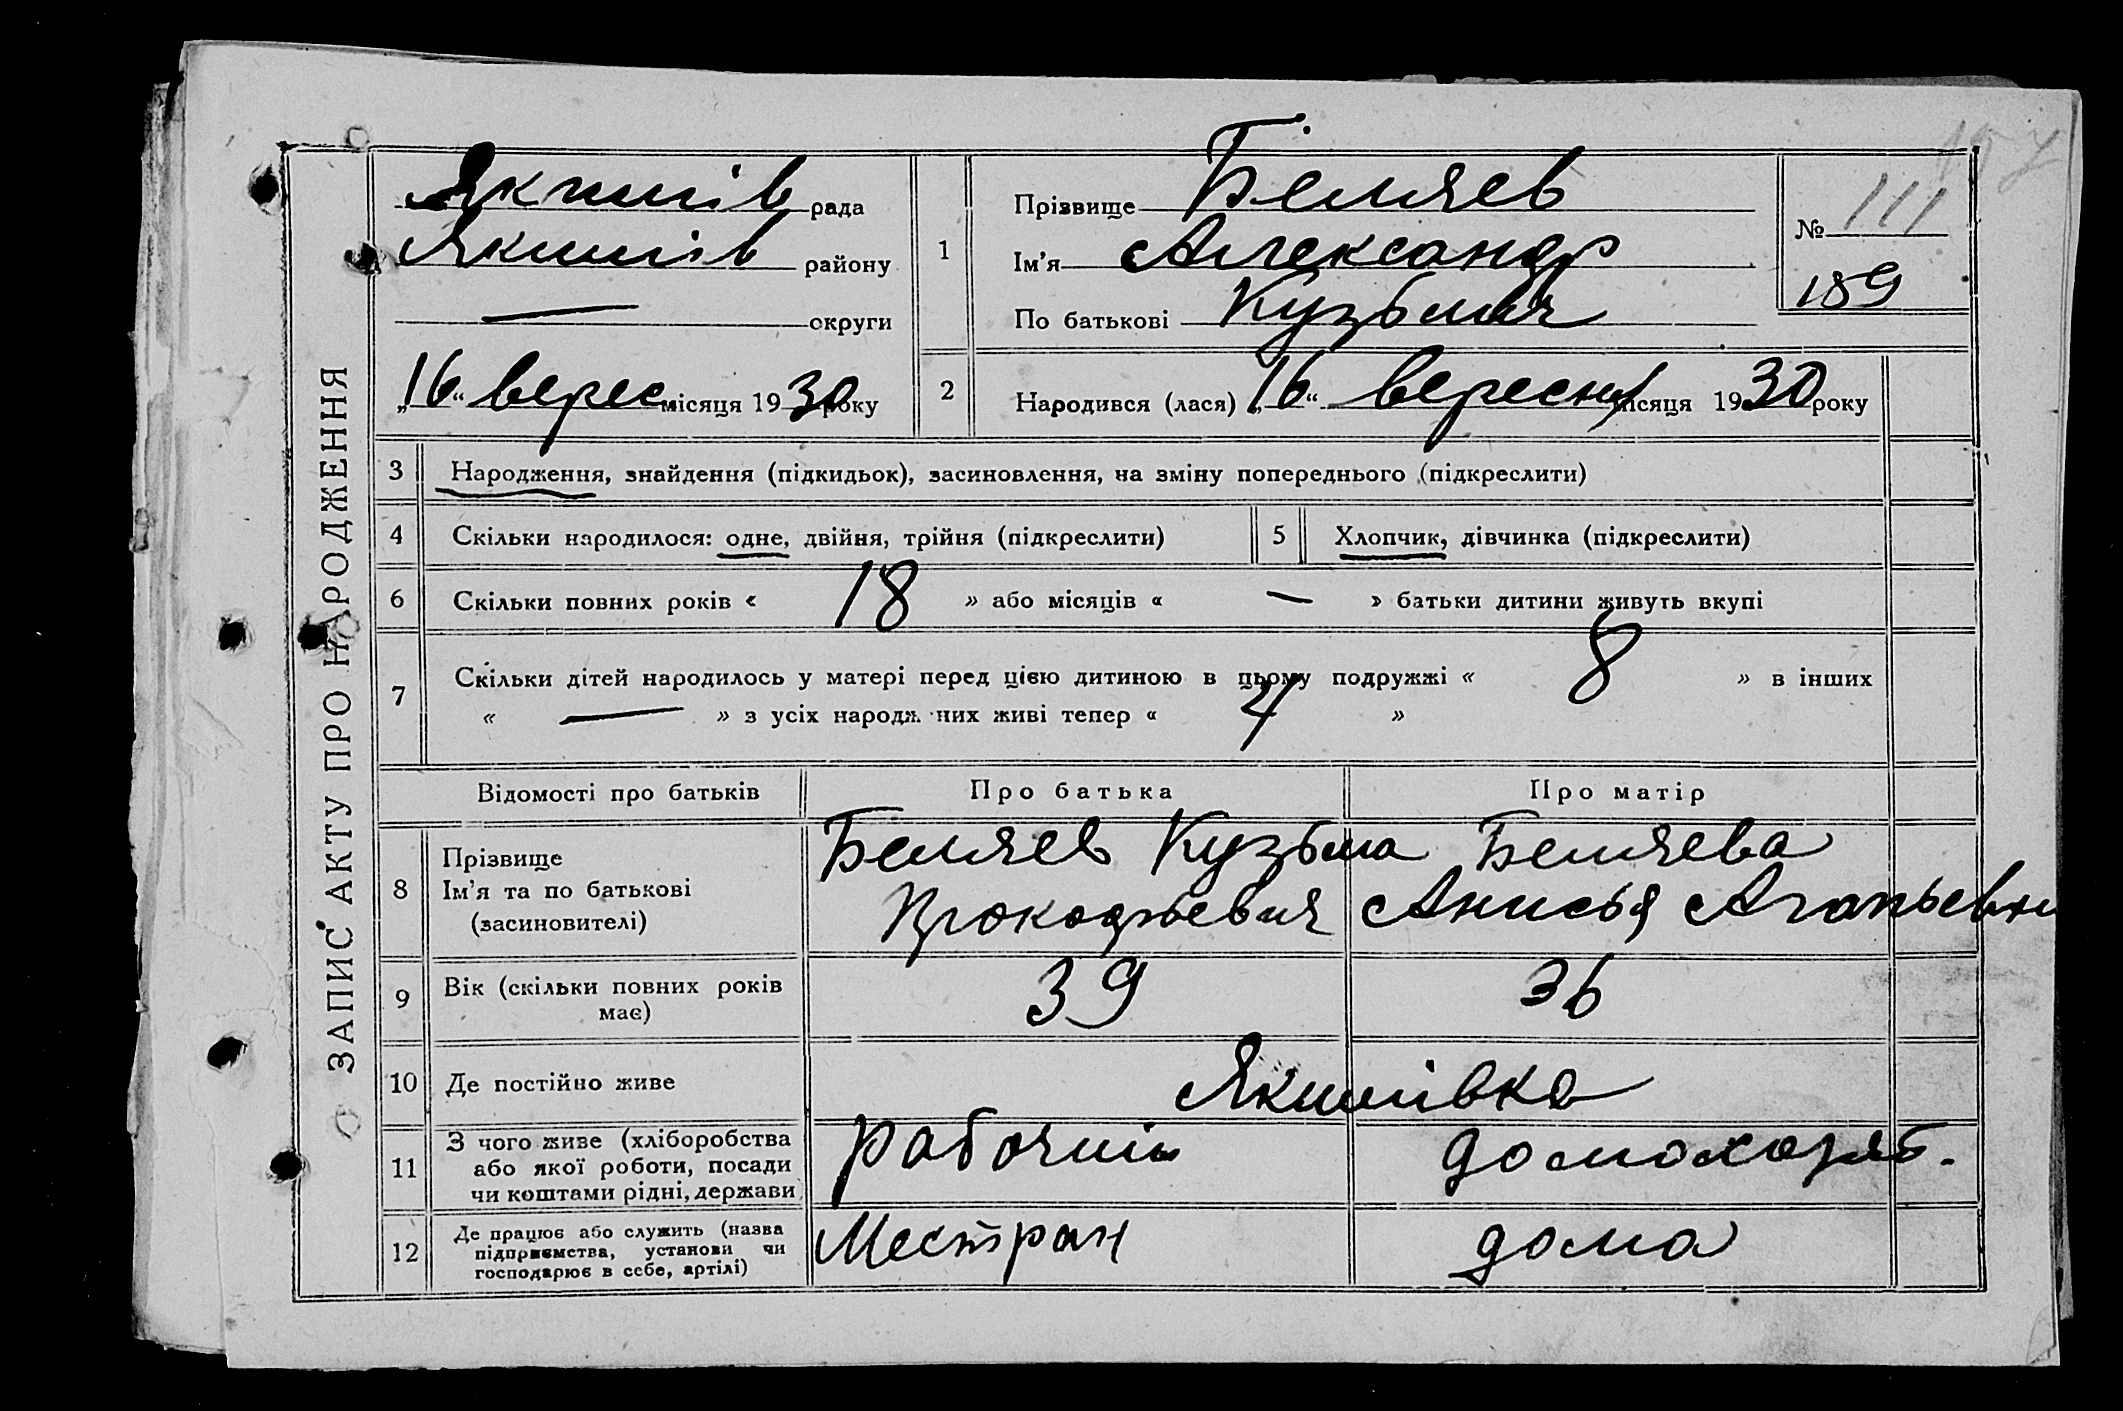 ЗАПИС АКТУ ПРО НАРОДЖЕННЯ
Якимів рада
Якимів району
— округи
„16“ верес місяця 1930 року
1
Прізвище Беляев
Ім'я Александр
По батькові Кузьмич
№ 111
189
2
Народився (лася) „16“ вересня місяця 1930 року
3 Народження, знайдення (підкидьок), засиновлення, на зміну попереднього (підкреслити)
4 Скільки народилося: одне, двійня, трійня (підкреслити)
5 Хлопчик, дівчинка (підкреслити)
6 Скільки повних років « 18 » або місяців « — » батьки дитини живуть вкупі
7 Скільки дітей народилось у матері перед цією дитиною в цьому подружжі « 8 » в інших
« — » з усіх народж них живі тепер « 4 »
Відомості про батьків Про батька Про матір
8 Прізвище
Ім'я та по батькові
(засиновителі)
Беляев Кузьма
Прокофьевич
Беляева
Анисья Агапьевн
9 Вік (скільки повних років
має)
39 36
10 Де постійно живе Якимівка
11 З чого живе (хліборобства
або якої роботи, посади
чи коштами рідні, держави)
рабочий домохозяб.
12 Де працює або служить (назва
підприємства, установи чи
господарює в себе, артілі)
Местран дома